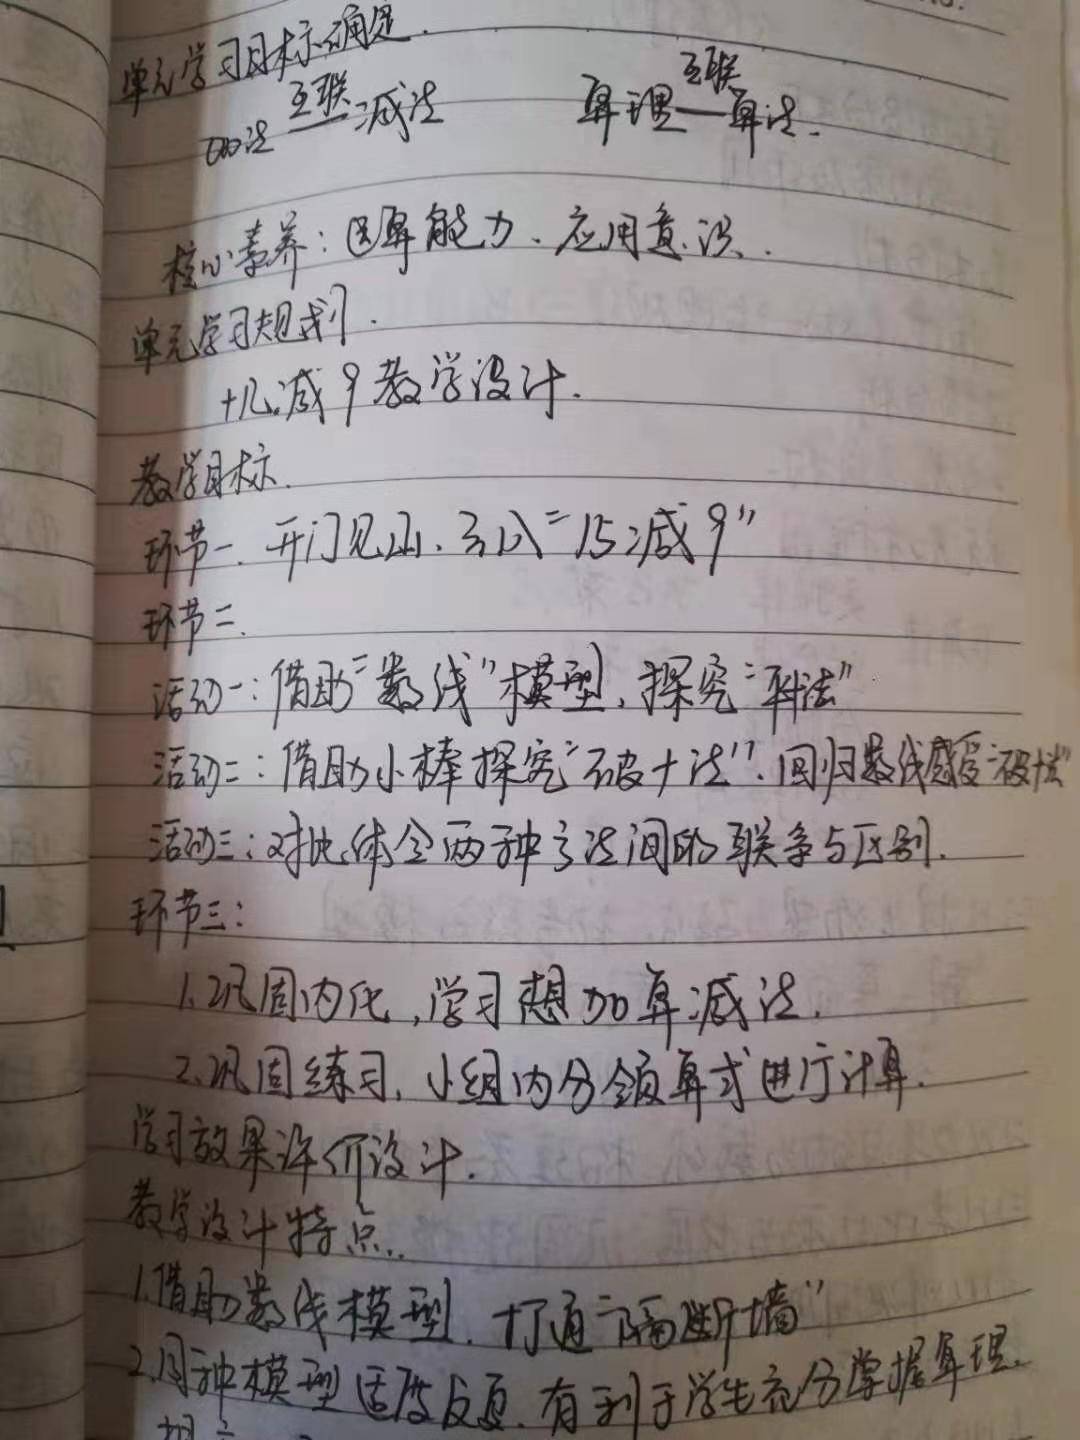 单元学习目标确定.
加法 互联 减法 算理 互联 算法.
核心素养: 运算能力、应用意识.
单元学习规划.
十几减9教学设计.
教学目标.
环节一. 开门见山、引入“15减9”
环节二.
活动一: 借助“数线”模型, 探究“平法”
活动二: 借助小棒探究“破十法”. 回归数线感受“破十法”
活动三: 对比体会两种方法间的联系与区别.
环节三:
1.巩固内化, 学习想加算减法.
2.巩固练习, 小组内分领算式进行计算.
学习效果评价设计.
教学设计特点..
1.借助数线模型. 打通“隔断墙”
2.同种模型适度反复. 有利于学生充分掌握算理.